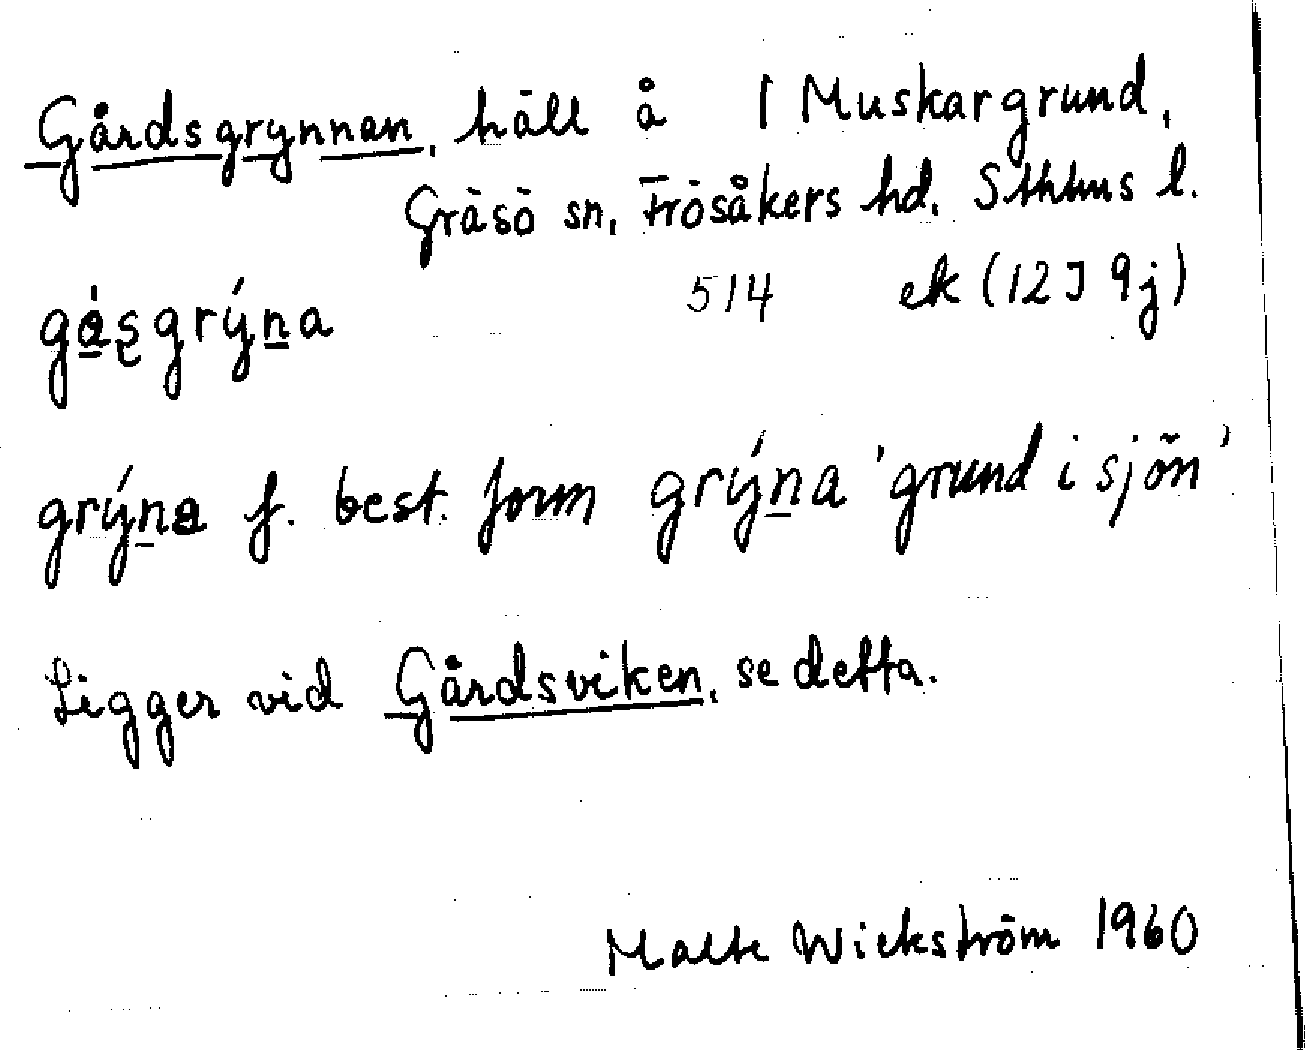 Gårdsgrynnan, häll å 1 Muskargrund,
Gräsö sn, Frösåkers hd. Sthlms l.
514 ek (12J 9j)
gásgrýna
grýna f. best. form grýna 'grund i sjön'
Ligger vid Gårdsviken, se detta.
Malte Wickström 1960